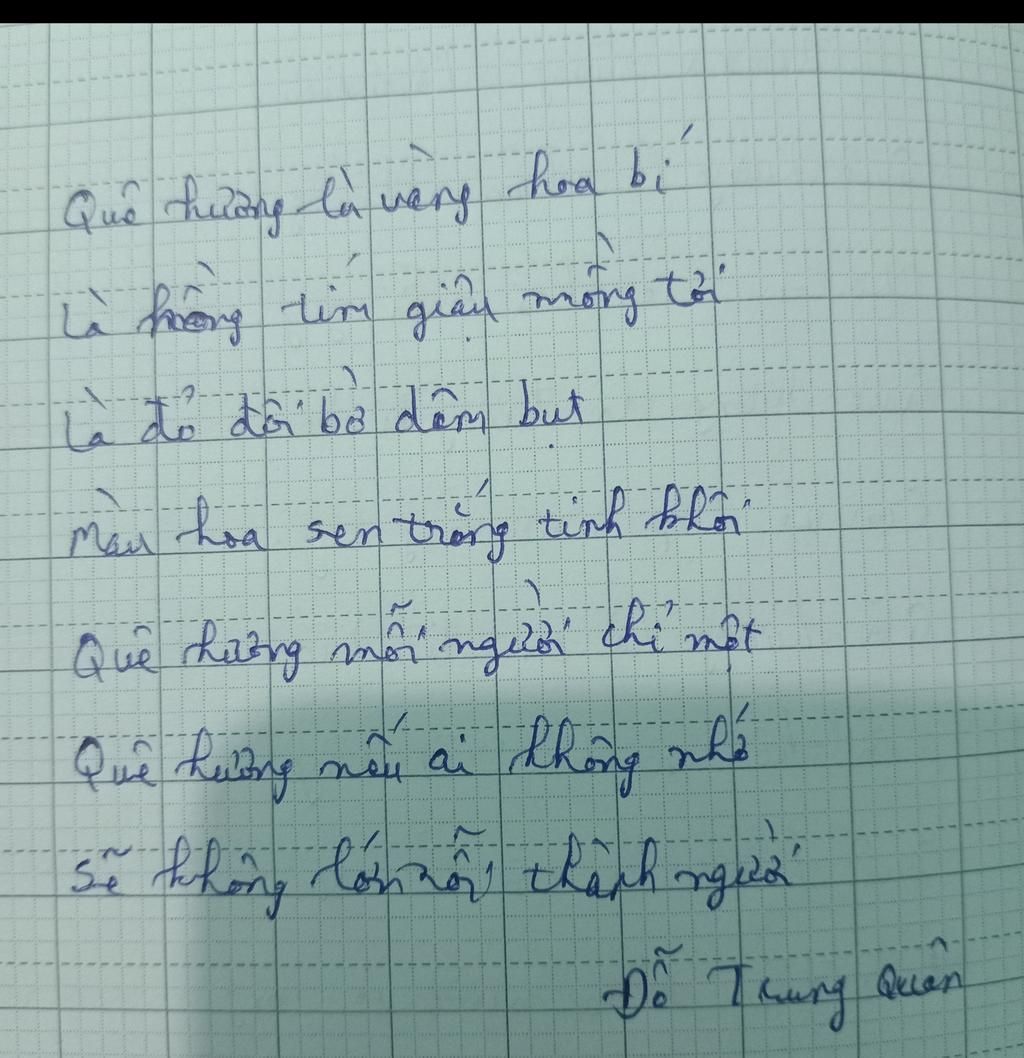 Quê hương là vàng hoa bí
Là hồng tím giậu mồng tơi
Là đỏ đôi bờ dâm bụt
Màu hoa sen trắng tinh khôi
Quê hương mỗi người chỉ một
Quê hương nếu ai không nhớ
Sẽ không lớn nổi thành người
Đỗ Trung Quân